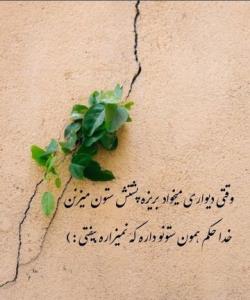 وقتی دیواری میخواد بریزه پشتش ستون میزنن
خدا حکم همون ستونو داره که نمیزاره بیفتی :)